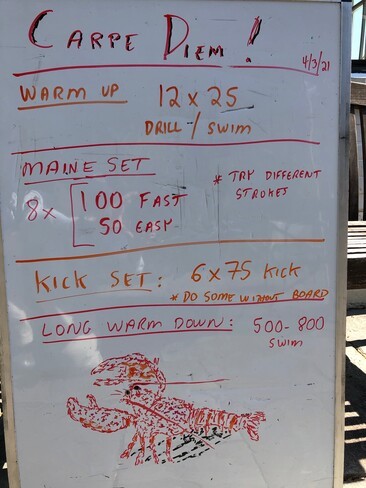 CARPE DIEM!
4/3/21
WARM UP 12 x 25
DRILL / SWIM
MAINE SET
8x 100 FAST
50 EASY
* TRY DIFFERENT
STROKES
KICK SET: 6 x 75 KICK
* DO SOME WITHOUT BOARD
LONG WARM DOWN: 500-800
SWIM